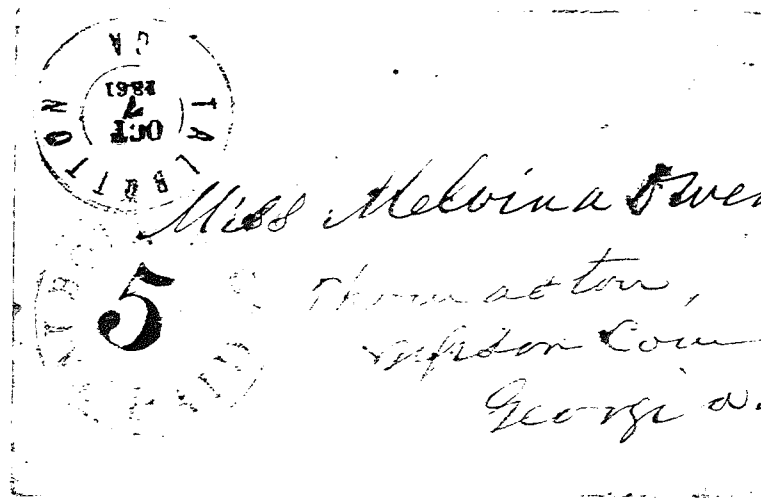 TALBOTTON
GA
OCT
7
1861
Miss Melvina Owen
5
PAID
Thomaston,
Upson Coun
Georgia.